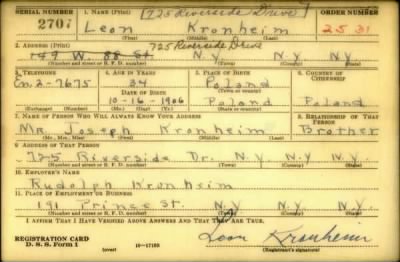 SERIAL NUMBER 1. NAME (Print) [725 Riverside Drive] ORDER NUMBER
270 Leon Kronheim 2531
(First) (Middle) (Last)
2. ADDRESS (Print) 725 Riverside Drive
149 W. 88 St. N.Y. N.Y. N.Y.
(Number and street or R. F. D. number) (Town) (County) (State)
3. TELEPHONE 4. AGE IN YEARS 5. PLACE OF BIRTH 6. COUNTRY OF CITIZENSHIP
En. 2-7675 34 Poland
DATE OF BIRTH (Town or county)
10-16-1906 Poland Poland
(Exchange) (Number) (Mo.) (Day) (Yr.) (State or country)
7. NAME OF PERSON WHO WILL ALWAYS KNOW YOUR ADDRESS 8. RELATIONSHIP OF THAT PERSON
Mr. Joseph Kronheim Brother
(Mr., Mrs., Miss) (First) (Middle) (Last)
9. ADDRESS OF THAT PERSON
725 Riverside Dr. N.Y. N.Y. N.Y.
(Number and street or R. F. D. number) (Town) (County) (State)
10. EMPLOYER'S NAME
Rudolph Kronheim
11. PLACE OF EMPLOYMENT OR BUSINESS
191 Prince St. N.Y. N.Y. N.Y.
(Number and street or R. F. D. number) (Town) (County) (State)
I AFFIRM THAT I HAVE VERIFIED ABOVE ANSWERS AND THAT THEY ARE TRUE.
REGISTRATION CARD
D. S. S. Form 1 (over) Leon Kronheim
(Registrant's signature)